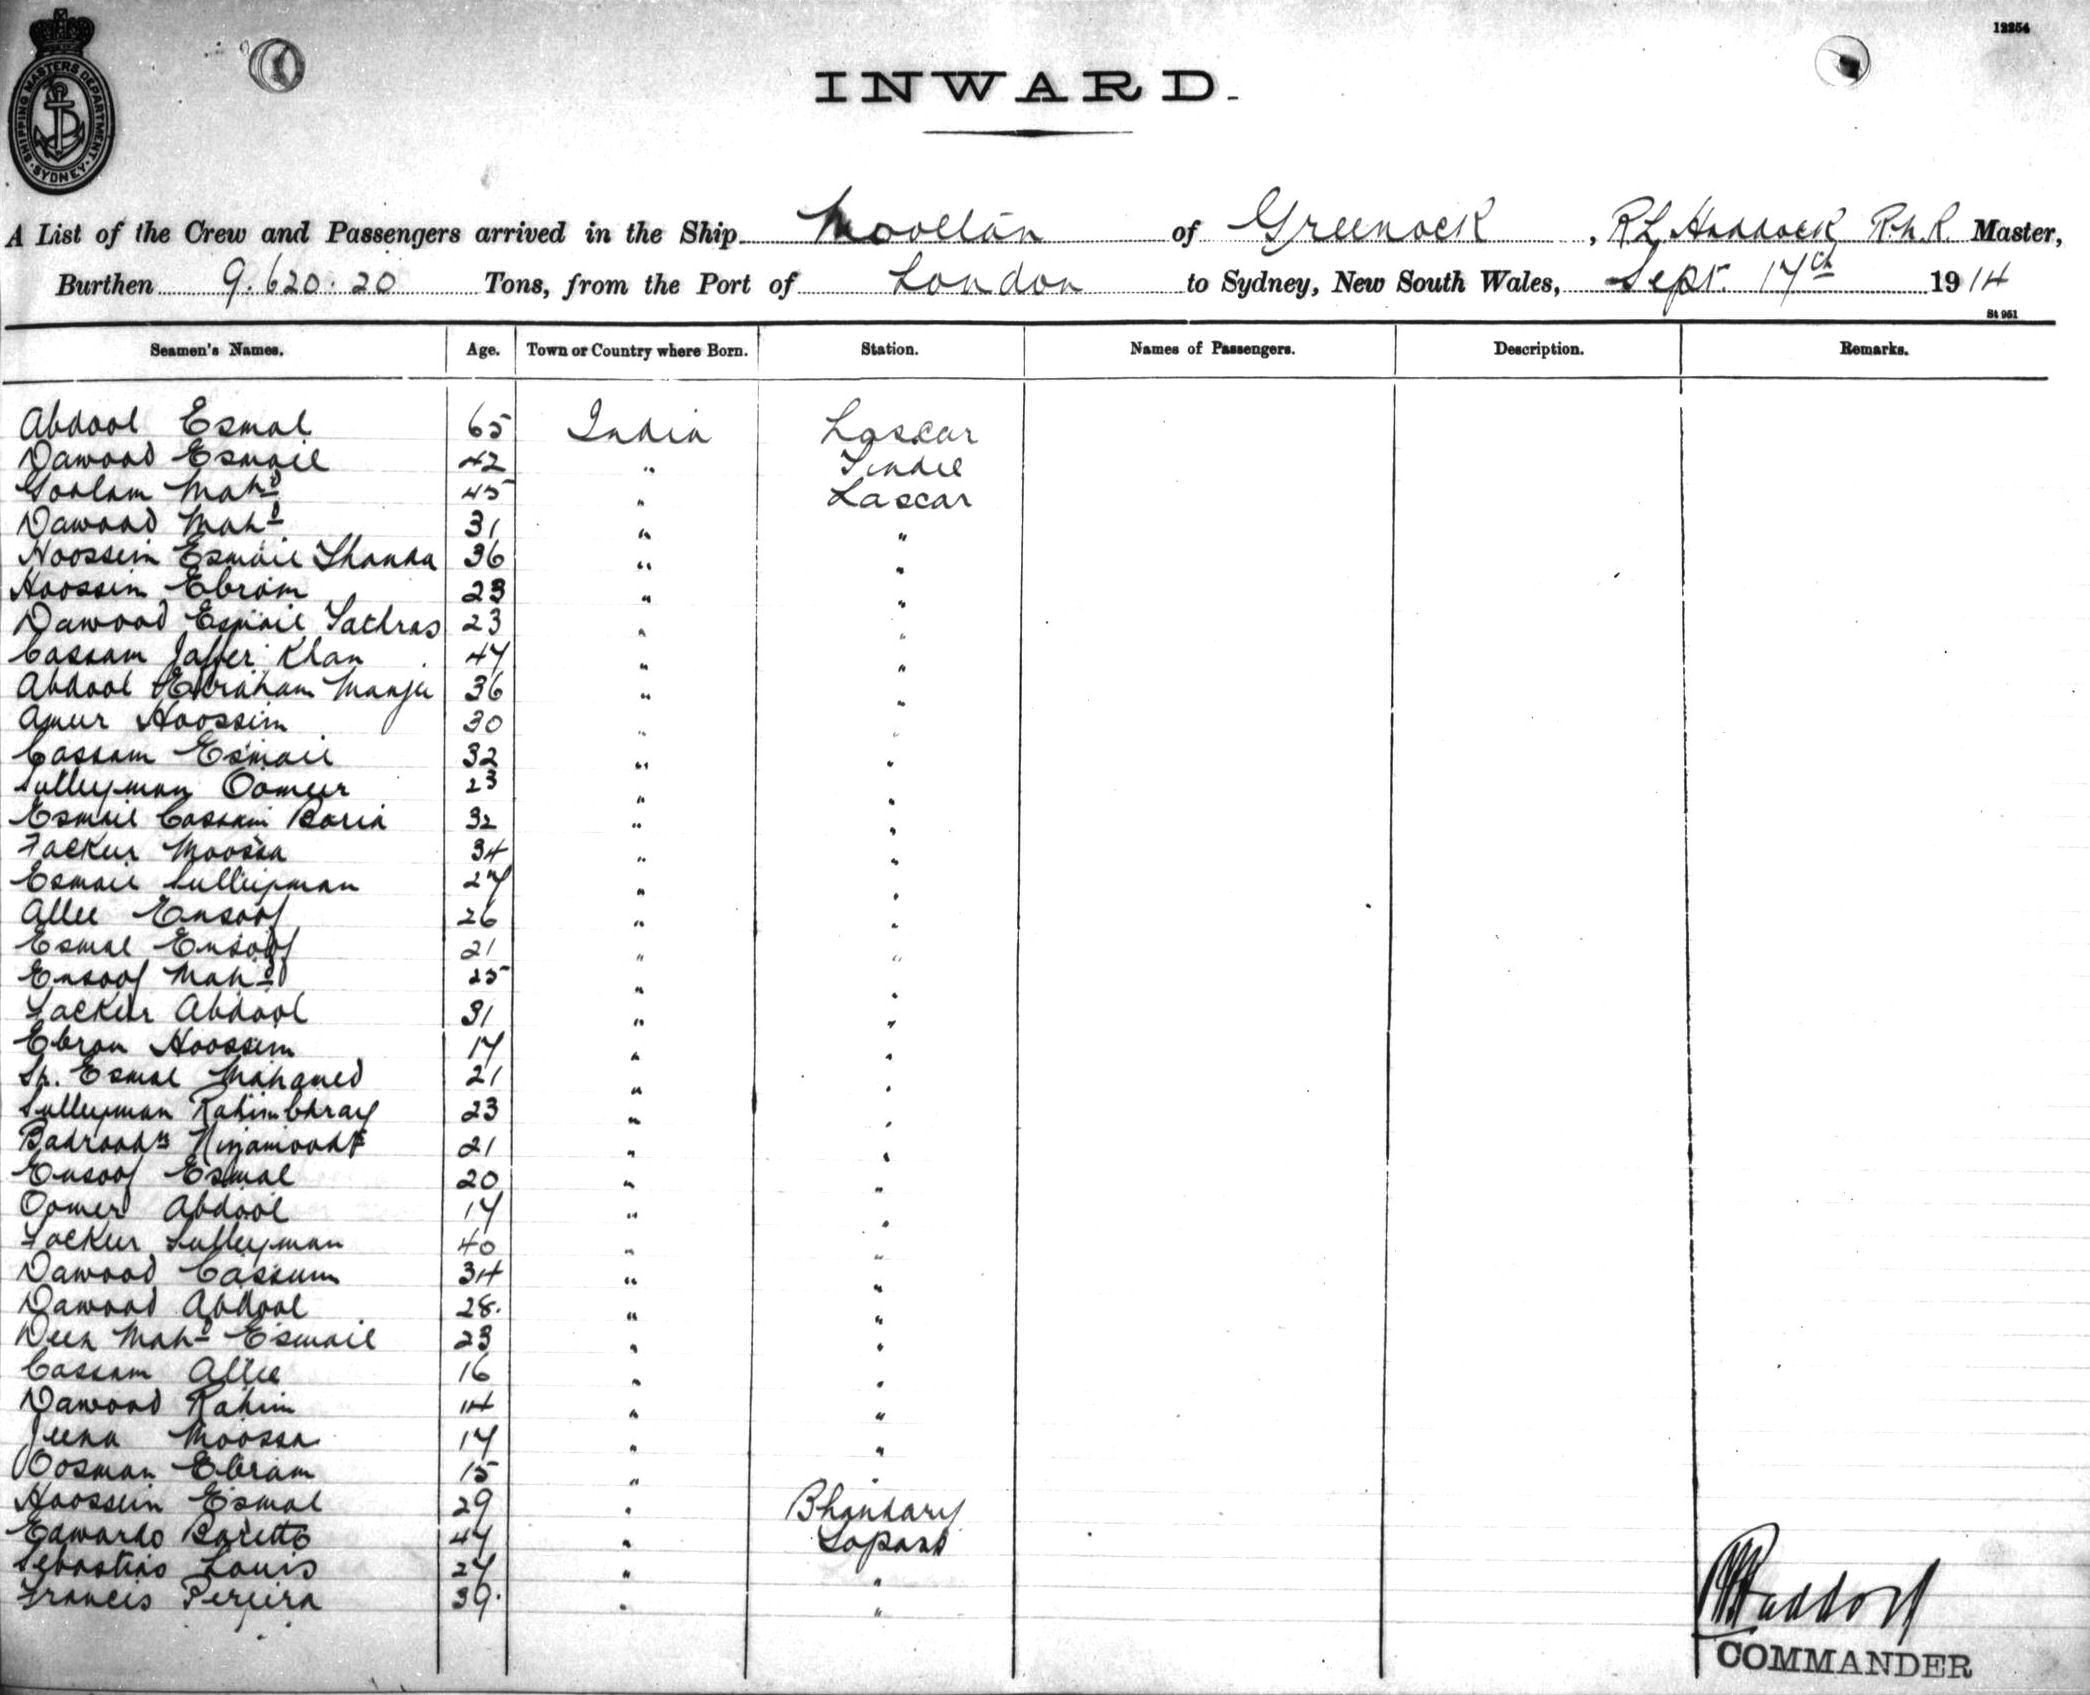 SHIPPING MASTERS DEPARTMENT SYDNEY
12254
INWARD.
A List of the Crew and Passengers arrived in the Ship Mooltan of Greenock, R L Haddock R.N.R. Master,
Burthen 9.620.20 Tons, from the Port of London to Sydney, New South Wales, Sept. 17th 1914
St 951
Seamen's Names. Age. Town or Country where Born. Station. Names of Passengers. Description. Remarks.
Abdool Esmal 65 India Lascar
Dawood Esmail 42 " Tindel
Goolam Mahd 45 " Lascar
Dawood Mahd 31 " "
Hoossein Esmail 36 " "
Hoossin Ebram 23 " "
Dawood Esmail 23 " "
Cassam Jaffer Khan 47 " "
Abdool Ebraham 36 " "
Amur Hoossim 30 " "
Cassam Esmail 32 " "
Sulleyman Oomur 23 " "
Esmail Cassam Baria 32 " "
Fackur Moossa 34 " "
Esmail Sulleyman 27 " "
Allee Ensoof 26 " "
Esmal Ensoof 21 " "
Ensoof Mahd 25 " "
Fackur Abdool 31 " "
Ebron Hoossim 17 " "
Sk. Esmal Mahamed 21 " "
Sulleyman 23 " "
21 " "
Ensoof Esmal 20 " "
Oomer Abdool 17 " "
Fackur Sulleyman 40 " "
Dawood Cassum 34 " "
Dawood Abdool 28. " "
Deen Mahd Esmail 23 " "
Cassam Allee 16 " "
Dawood Rahim 14 " "
Jeena Moossa 17 " "
Oosman Ebram 15 " "
Hoossein Esmal 29 " Bhandary
Edwardo Baretto 47 " Topass
Sebastiao Louis 27 " "
Francis Pereira 39. " "
R L Haddock
COMMANDER